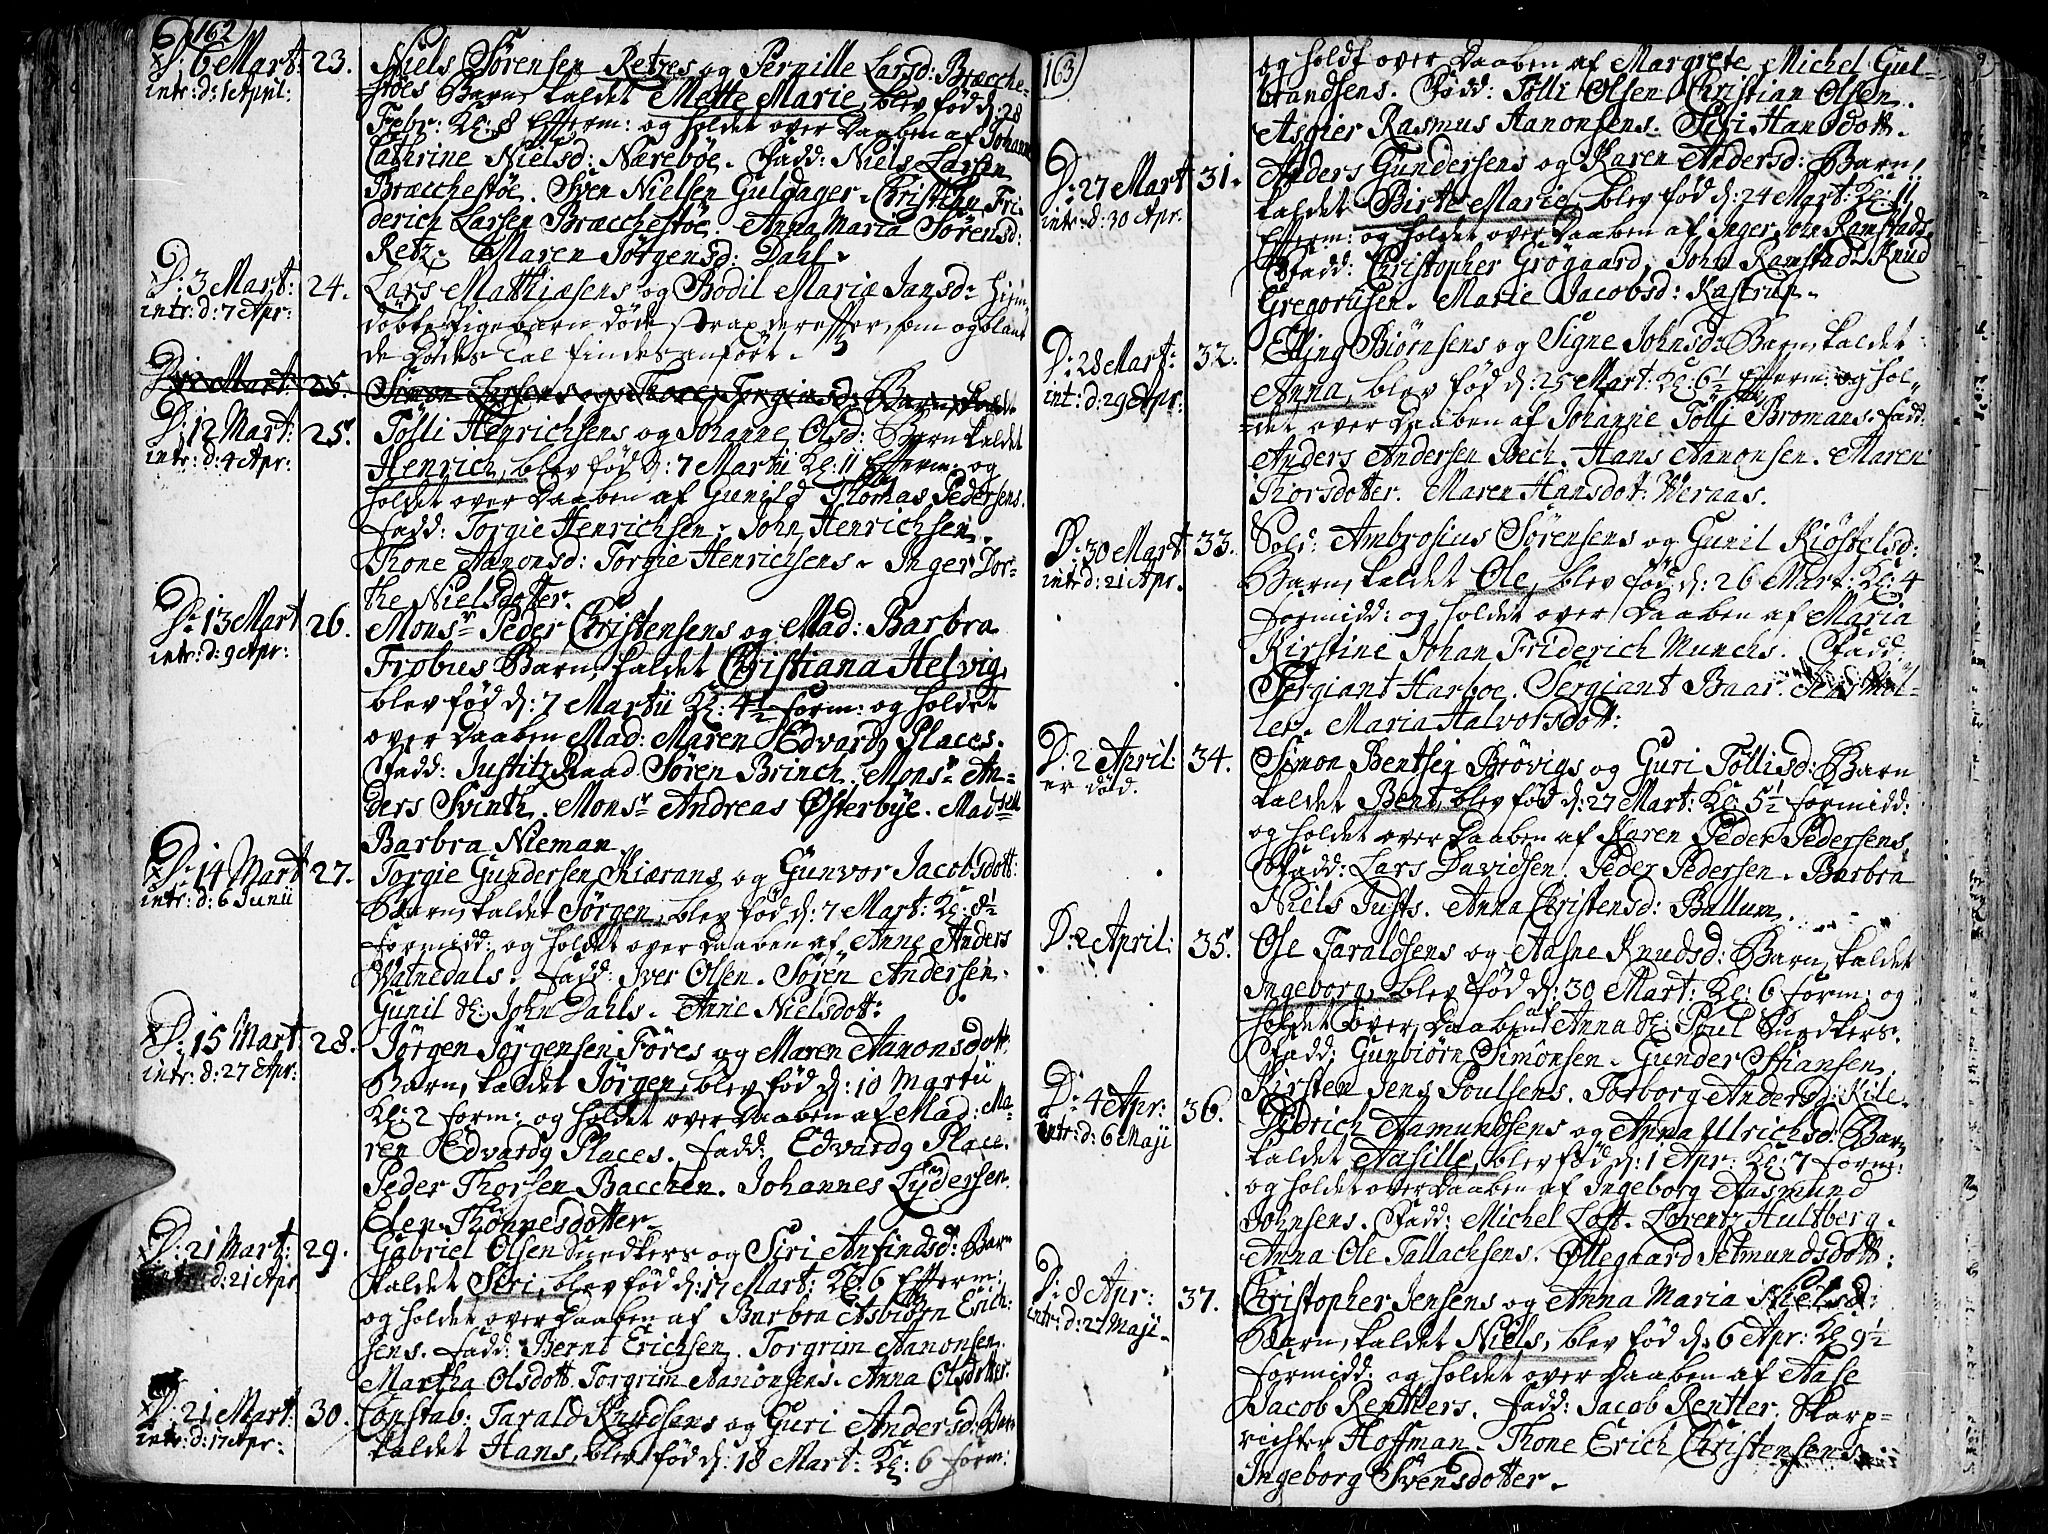 162
D: 6 Mart: 23. Niels Sörensen Retzes og Pernille Larsd: Bracche-
intr: d: 1 April: støes Barn, kaldet Mette Marie, blev född d: 28
Febr: Kl: 8 Efterm: og holdet over Daaben af Johanne
Cathrine Nielsd: Nærebøe. Fadd: Niels Larsen
Bracchestöe. Sven Nielsen Guldager. Christen Fri-
derich Larsen Bracchestöe. Anna Maria Sörensd:
Retz. Maren Jörgensd: Dahl.
D: 3 Mart: 24. Lars Mathiæsens og Bodil Marie Jansd:
intr: d: 7 Apr: döbte Pigebarn döde strax derefter, som og bland
de Dödes Tal findes anfört.
25. Simon og Thore Torgiusd: Barn
D: 12 Mart: 25. Tölli Henrichsens og Johanne Olsd: Barn kaldet
intr: d: 4 Apr: Henrich, blev föd d: 7 Martii Kl: 11 Efterm: og
holdet over Daaben af Gunild Thomas Pedersens.
Fadd: Torgie Henrichsen. John Henrichsen.
Thone Aanonsd: Torgie Henrichsens. Inger Dor-
the Nielsdotter.
D: 13 Mart 26. Monsr Peder Christensens og Mad: Barbra
intr: d: 9 Apr: Frobus Barn, kaldet Christiana Helvig,
blev föd d: 7 Martii Kl: 4½ form: og holdet
over Daaben Mad: Maren Edvardg Places.
Fadd: Justitz Raad Sören Brinch. Monsr An-
ders Svinth. Monsr Andreas Østerbye. Madsell
Barbra Nieman.
D: 14 Mart 27. Torgie Gundersen Kiærans og Gunvor Jacobsdott:
intr: d: 6 Junii Barn, kaldet Jörgen, blev föd d: 7 Mart: Kl: 8½
formidd: og holdet over Daaben af Anne Anders
Watnedals. Fadd: Iver Olsen. Sören Andersen.
Gunil John Dahls. Anne Nielsdott:
D: 15 Mart 28. Jörgen Jörgensen Föres og Maren Aanonsdott:
intr: d: 27 Apr: Barn, kaldet Jörgen, blev föd d: 10 Martii
Kl: 2 form: og holdet over Daaben af Mad: Ma-
ren Edvardg Places. Fadd: Edvardg Place.
Peder Thorsen Bacchen. Johannes Tydersen.
Elen Thönnesdotter.
D: 21 Mart: 29. Gabriel Olsen Snedkers og Siri Anfindsd: Barn
intr: d: 21 Apr kaldet Siri, blev föd d: 17 Mart: Kl: 6 Efterm:
og holdet over Daaben af Barbra Asbiörn Erich-
sens. Fadd: Bernt Erichsen. Torgrim Aanonsen.
Martha Olsdott. Torgrim Aanonsens. Anna Olsdotter.
D: 21 Mart: 30. Constab: Tarald Knudsens og Guri Andersd: Barn
intr: d: 17 Apr: kaldet Hans, blev föd d: 18 Mart: Kl: 6 form:
163
og holdt over Daaben af Margrete Michel Gul-
brandsens. Fadd: Tölli Olsen. Christian Olsen.
Asgier Rasmus Aanonsens. Siri Hansdott.
D: 27 Mart 31. Anders Gundersens og Karen Andersd: Barn,
intr: d: 30 Apr. kaldet Birte Marie, blev föd d: 24 Mart: Kl: 11
Efterm: og holdet over Daaben af Inger Ramstads
Fadd: Christopher Grögaard. John Ramstad. Knud
Gregoriisen. Marie Jacobsd: Kastrup.
D: 28 Mart: 32. Elling Biörnsens og Signe Johnsd: Barn, kaldet
int: d: 29 Apr: Anna, blev föd d: 25 Mart: Kl: 6½ Efterm: og hol-
det over Daaben af Johanne Tölli Bromans. Fadd:
Anders Andersen Bech. Hans Aanonsen. Maren
Thorsdotter. Maren Hansdot: Weraas.
D: 30 Mart 33. Sold: Ambrosius Sörensens og Gunil Kiöstelsd:
intr: d: 21 Apr. Barn, kaldet Ole, blev föd d: 26 Mart: Kl: 4
formidd: og holdet over Daaben af Maria
Kirstine Johan Friderich Munchs. Fadd:
Sergiant Harboe. Sergiant Baar. Jens Møl-
ler. Maria Halvorsdott:
D: 2 April: 34. Simon Bentsen Brövigs og Guri Töllisd: Barn
er död. kaldet Bent, blev föd d: 27 Mart: Kl: 5½ formidd:
og holdet over Daaben af Karen Peder Pedersens.
Fadd: Lars Davidsen. Peder Pedersen. Barbra
Niels Justs. Anna Christensd: Ballum.
D: 2 April: 35. Ole Taraldsens og Aasne Knudsd: Barn, kaldet
Ingeborg, blev föd d: 30 Mart: Kl: 6 form: og
holdet over Daaben af Anna Poul Snedkers.
Fadd: Gunbiörn Simonsen. Gunder Stiansen.
Kirsten Jens Poulsens. Torborg Andersd: Kile.
D: 4 Apr: 36. Didrich Aamundsens og Anna Ulrichsd: Barn
intr: d: 6 Maji kaldet Aasille, blev föd d: 1 Apr: Kl: 7 form:
og holdet over Daaben af Ingeborg Aasmund
Johnsens. Fadd: Michel Loft. Lorentz Hultberg.
Anna Ole Tallachsens. Øllegaard Setmundsdott:
D: 8 Apr: 37. Christopher Jensens og Anna Maria Nielsd:
intr: d: 27 Maji. Barn, kaldet Niels, blev föd d: 6 Apr: Kl: 9½
formidd: og holdet over Daaben af Aase
Jacob Rentlers. Fadd: Jacob Rentler. Skarp-
richter Hoffman. Thone Erich Christensens.
Ingeborg Svensdotter.